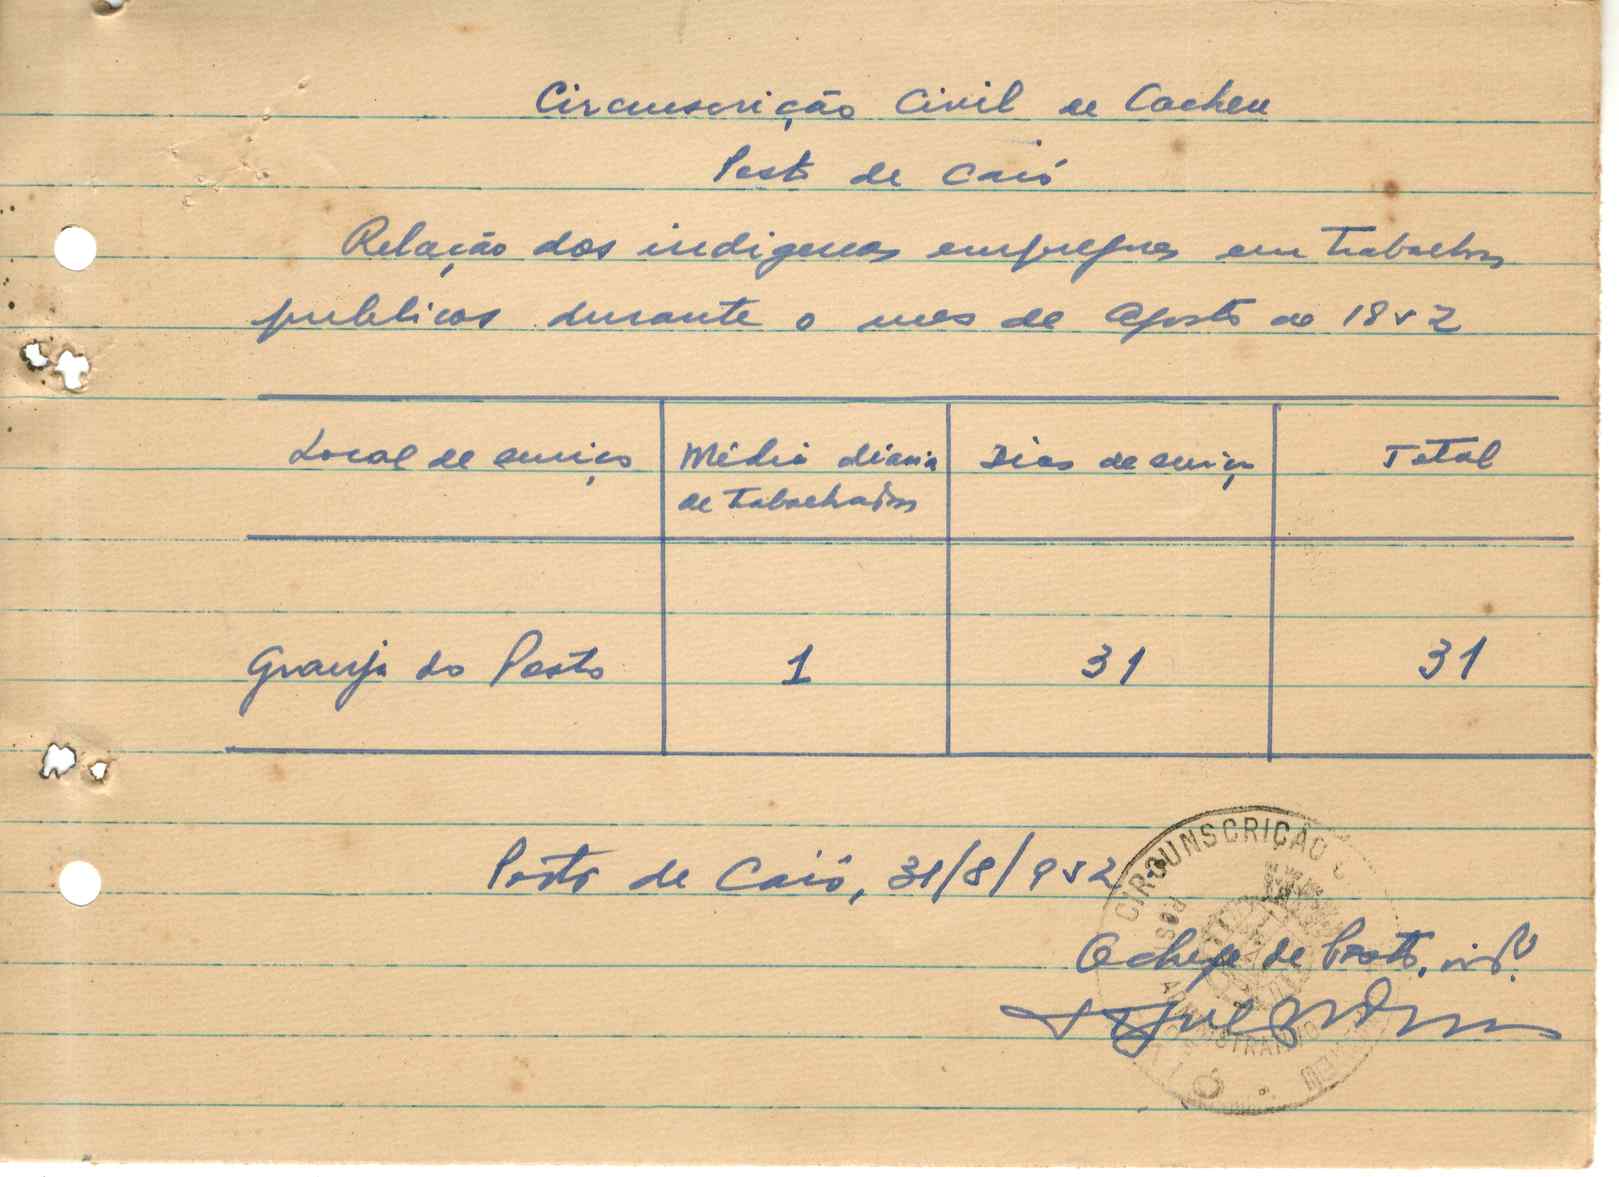 Circunscrição Civil de Cacheu
Posto de Caió
Relação dos indigenas empregues em trabalhos
publicos durante o mes de Agosto de 1952
Local de serviço | Média diaria de trabalhadores | Dias de serviço | Total
Granja do Posto | 1 | 31 | 31
Posto de Caió, 31/8/952
O chefe de Posto,
CIRCUNSCRIÇÃO
POSTO ADMINISTRATIVO